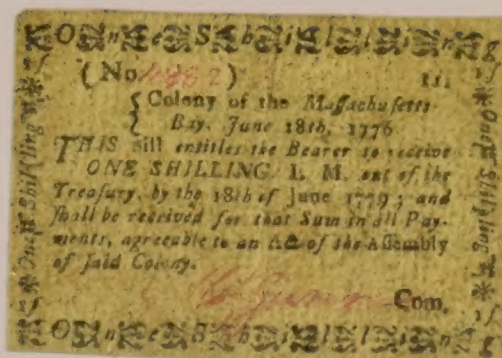 One Shilling
(No )
Colony of the Maſſachuſetts
Bay, June 18th, 1776
THIS Bill entitles the Bearer to receive
ONE SHILLING L. M. out of the
Treaſury, by the 18th of June 1779; and
ſhall be received for that Sum in all Pay-
ments, agreeable to an Act of the Aſſembly
of ſaid Colony.
Com.
One Shilling
One Shilling
One Shilling